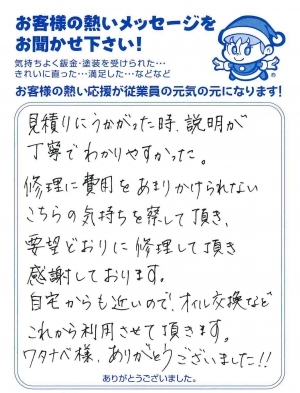 お客様の熱いメッセージを
お聞かせ下さい!
気持ちよく鈑金・塗装を受けられた…
きれいに直った…満足した…などなど
お客様の熱い応援が従業員の元気の元になります!
見積りにうかがった時、説明が
丁寧でわかりやすかった。
修理に費用をあまりかけられない
こちらの気持ちを察して頂き、
要望どおりに修理して頂き
感謝しております。
自宅からも近いので、オイル交換など
これから利用させて頂きます。
ワタナベ様、ありがとうございました!!
ありがとうございました。